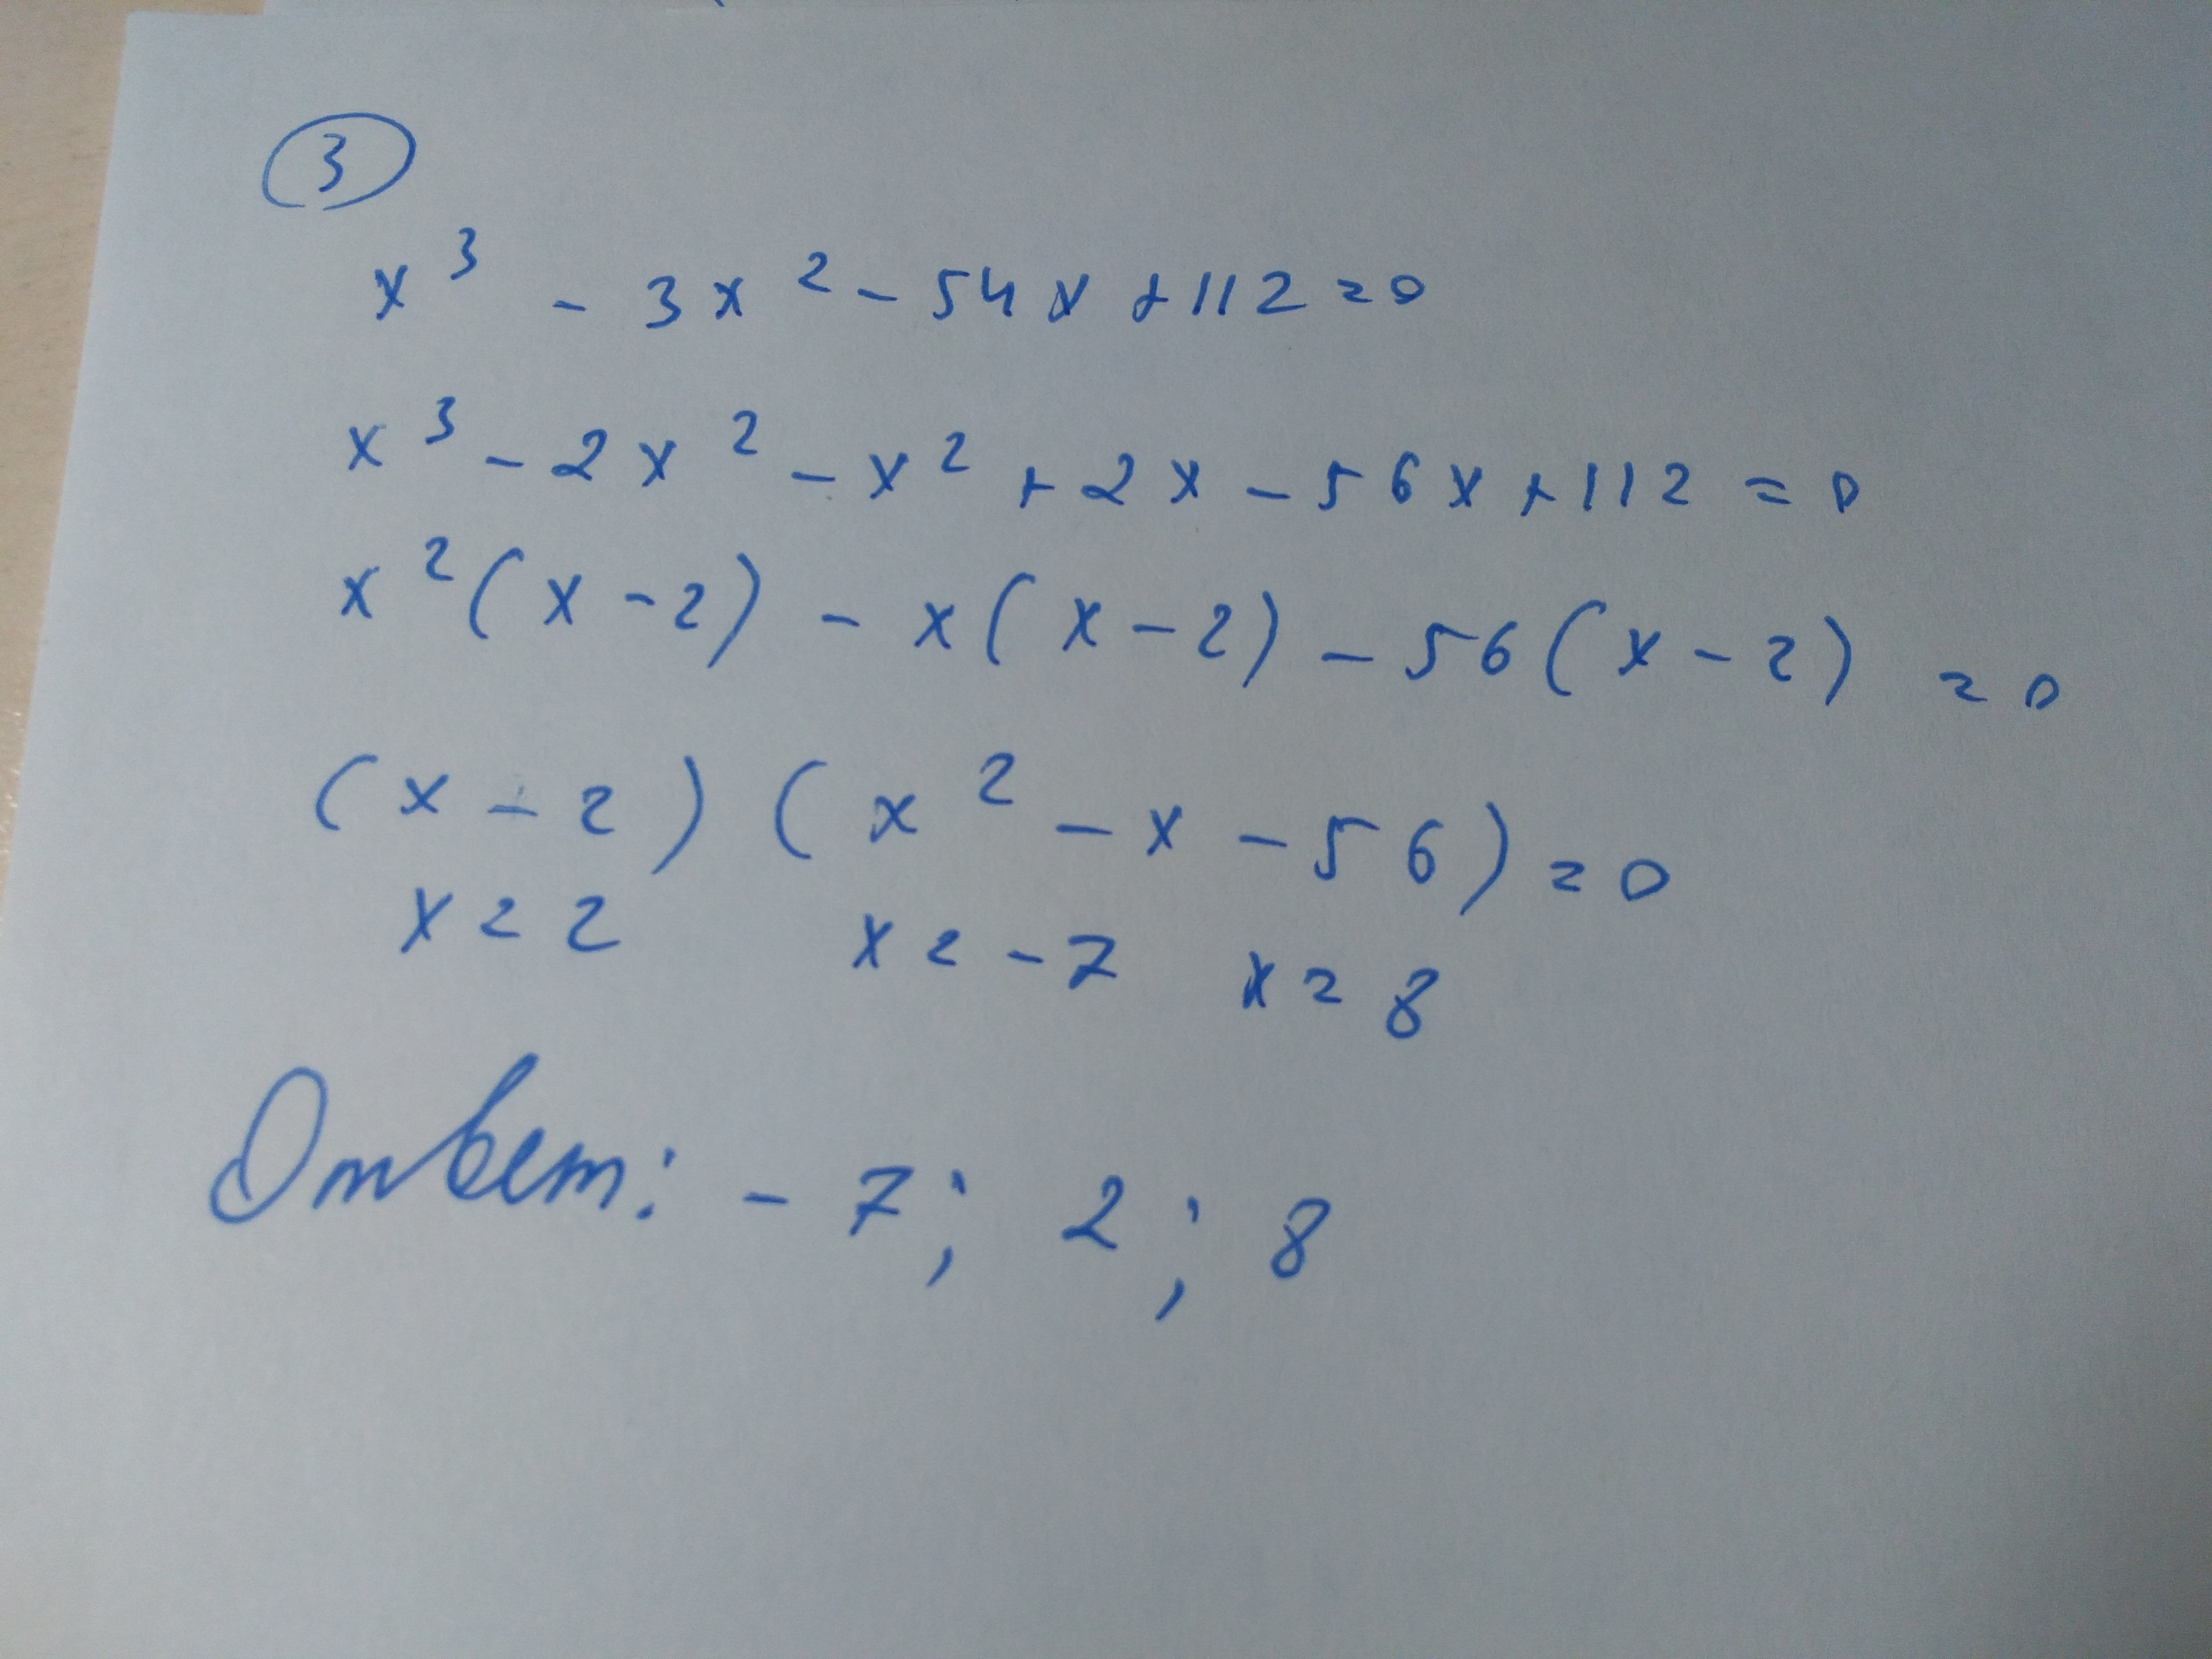 3
x³ - 3x² - 54x + 112 = 0
x³ - 2x² - x² + 2x - 56x + 112 = 0
x²(x - 2) - x(x - 2) - 56(x - 2) = 0
(x - 2)(x² - x - 56) = 0
x = 2 x = -7 x = 8
Ответ: -7; 2; 8